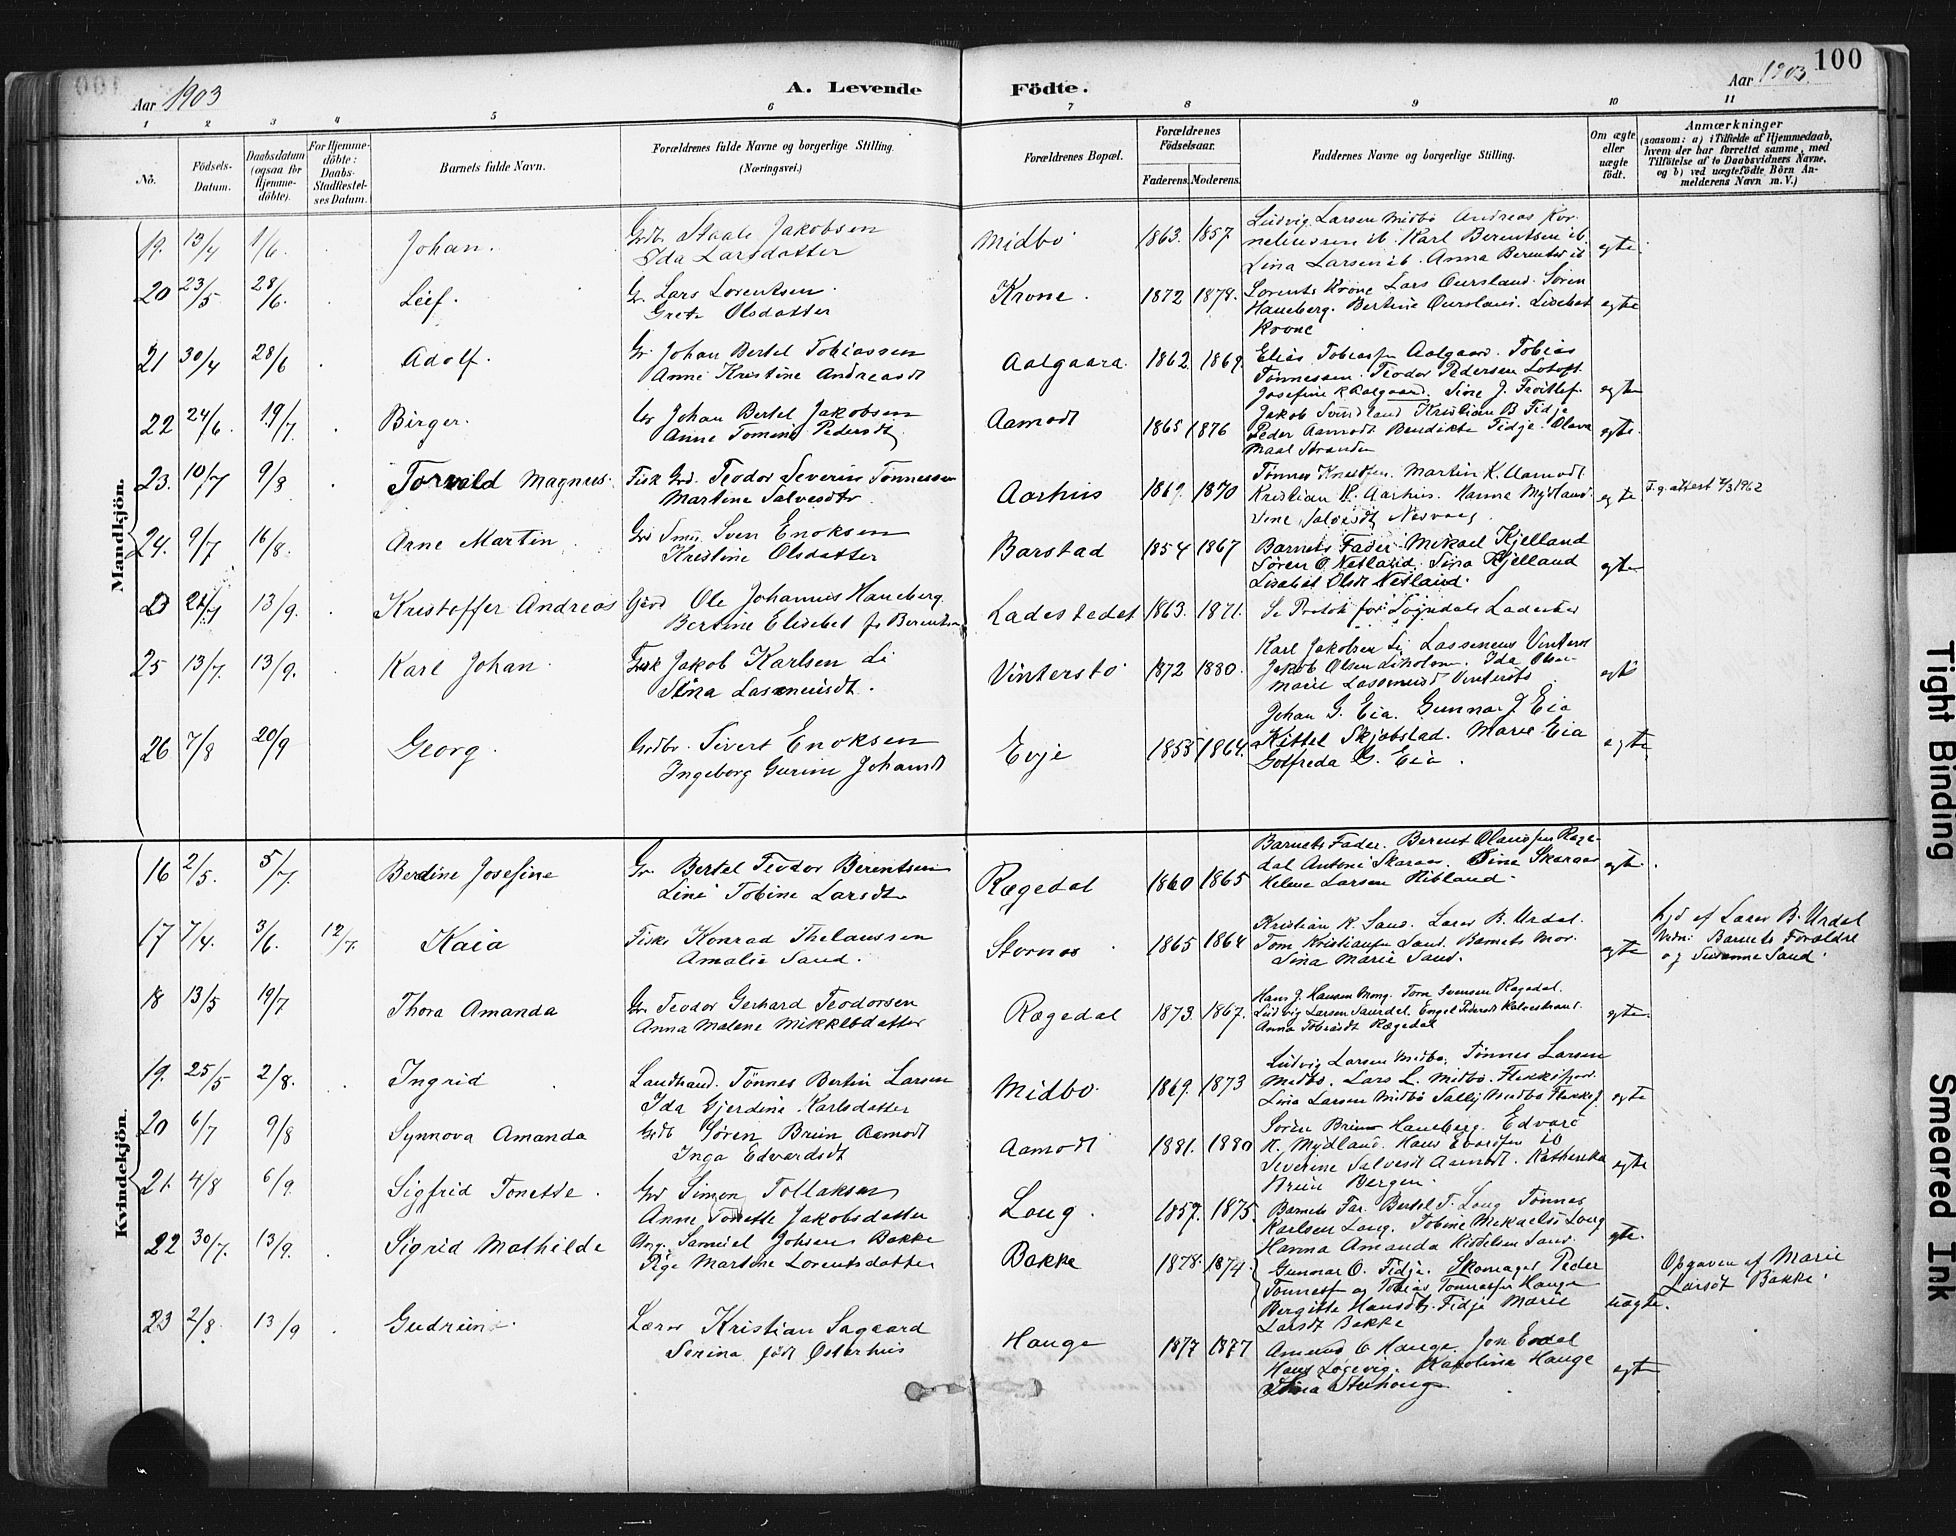 100
Aar 1903
A. Levende
Födte.
Aar 1903.
1 2 3 4 5 6 7 8 9 10 11
No.
Födsels-
Datum.
Daabsdatum
(ogsaa for
Hjemme-
döbte).
For Hjemme-
döbte:
Daabs-
Stadfæstel-
ses Datum.
Barnets fulde Navn.
Forældrenes fulde Navne og borgerlige Stilling.
(Næringsvei.)
Forældrenes Bopæl.
Forældrenes
Födselsaar.
Faderens. Moderens.
Faddernes Navne og borgerlige Stilling.
Om ægte
eller
uægte
født.
Anmærkninger
(saasom: a) i Tilfælde af Hjemmedaab,
hvem der har forrettet samme, med
Tilföielse af to Daabsvidners Navne,
og b) ved uægtefödte Börn An-
melderens Navn m. V.)
Mandkjön.
19. 13/4 1/6. Johan. Grdb. Staale Jakobsen
Ida Larsdatter
Midbø 1863. 1857 Ludvig Larsen Midbø Andreas Kor-
neliussen ib. Karl Berentsen ib.
Lina Larsen ib. Anna Berentsd ib
egte.
20 23/5 28/6. Leif. G. Lars Lorentsen.
Grete Olsdatter
Krone. 1872 1878. Lorents Krone Lars Oursland. Sören
Haneberg. Bertine Oursland. Lisebet
Krone
egte
21 30/4 28/6 Adolf. Gr. Johan Bertel Tobiassen
Anne Kristine Andreasdt
Aalgaard. 1862. 1869. Elias Tobiasen Aalgaard. Tobias
Tönnessen. Teodor Pedersen
Josefine Aalgaard. Sine J.
egte
22 24/6. 19/7. Birger. Johan Bertel Jakobsen
Anne Tomine Pedersdt
Aamodt 1865 1876 Jakob Kristian B Tidje
Peder Aamodt Bendikte Tidje. Olava
Maal Stranden
egte.
23. 10/7 9/8 Torvald Magnus. Fisk Grd. Teodor Severin Tönnessen
Martine Salvesdtr.
Aarhus 1869. 1870 Tönnes Martin K. Aamodt
Kristian K. Aarhus. Hanna Mydland.
Salvesdt
egte F. g. attest 1962
24. 9/7 16/8. Arne Martin Grd Sven Enoksen
Kristine Olsdatter
Barstad 1854 1867 Barnets Fader Mikael Kjelland
Sören O Netland. Sina Kjelland
Lisebet Olsdt Netland.
egte
13/9. Kristoffer Andreas Ole Johannes Haneberg
Bertine Elisebet
Ladestedet 1863. 1871. Se Protok for Sogndals Ladested
25 13/7. 13/9. Karl Johan. Fisk Jakob Karlsen Li
Stina Lasmundt.
Vinterstø 1872 1880. Karl Jakobsen Li
Jakob Olsen Ida Olsen
Marie
egte
26 7/8 20/9 Georg. Grdbr. Sivert Enoksen
Ingeborg Gurine Johansdt
Evje 1855 1864. Johan G. Eia. Gunnar J Eia
Kittel Skjøbstad. Marie Eia
Gotfreda G. Eia.
egte
Kvindekjön.
16 2/5. 5/7. Berdine Josefine Gr. Bertel Teodor Berentsen
Line Tobine Larsdtr
Rægedal 1860 1865 Barnets Fader. Berent Olausen Ræge-
dal Antoni Skaraas. Sine Skaraas
Helene Larsen Hibland.
egte.
17 7/4. 3/6. 12/7. Kaia Fisk Konrad Thelaussen
Amalie Sand.
Stornes 1865 1864 Kristian K. Sand. Lars B. Urdal.
Tom Kristiansen Sand. Barnets Mor.
Sina Marie Sand.
egte hjd af Lars B. Urdal
Vidn: Barnets Forældre
og Susanne Sand.
18 13/5 19/7 Thora Amanda Gr. Teodor Gerhard Teodorsen
Anna Malene Mikkelsdatter
Rægedal 1873. 1867. Hans J. Hansen Mong. Tom Svensen Rægedal.
Ludvig Larsen Saurdal. Engel Pedersdt
Anna Tobiasdt Rægedal
egte.
19. 25/5 2/8. Ingrid Landhand. Tönnes Bertin Larsen
Ida Gjerdine Karlsdatter
Midbø. 1869. 1873 Ludvig Larsen Midbø. Tönnes Larsen
Midbø. Lars L. Midbø. Flekkefjord.
Lina Larsen Midbø Sally Midbø Flekkefj.
egte
20 6/7 9/8 Synnova Amanda Grdb Sören Bruin Aamodt
Inga Edvardsdt
Aamodt 1881. 1880 Sören Bruin Haneberg. Edvard
K. Mydland. Hans Edvardsen ib
Severine Salvesdt Aamodt. Katharina
Bruin Bergen.
egte
21. 4/8 6/9. Sigfrid Tonette. Grd Simon Tollaksen
Anne Tonette Jakobsdatter
Long. 1857. 1875. Barnets Far. Bertel T. Long Tönnes
Karlsen Long. Tobine Mikaelsd Long
Hanna Amanda Sand.
egte.
22 30/7. 13/9. Sigrid Mathilde Ung. Samuel Johsen Bakke
Pige Martine Lorentsdatter
Bakke 1878. 1874. Gunnar O. Tidje. Skomager Peder
Tönnesen og Tobias Tönnesen Hauge
Bergitte Hansdt. Tidje Marie
Larsdt Bakke
uægte. Opgaven af Marie
Larsdt Bakke.
23 2/8. 13/9 Gudrun. Lærer Kristian Sagaard
Serina født Østerhus
Hauge 1877 1877 Amund O Hauge. Jon Evdal
Hans Løgevig. Karolina Hauge
Stina
egte
Tight Binding
Smeared Ink